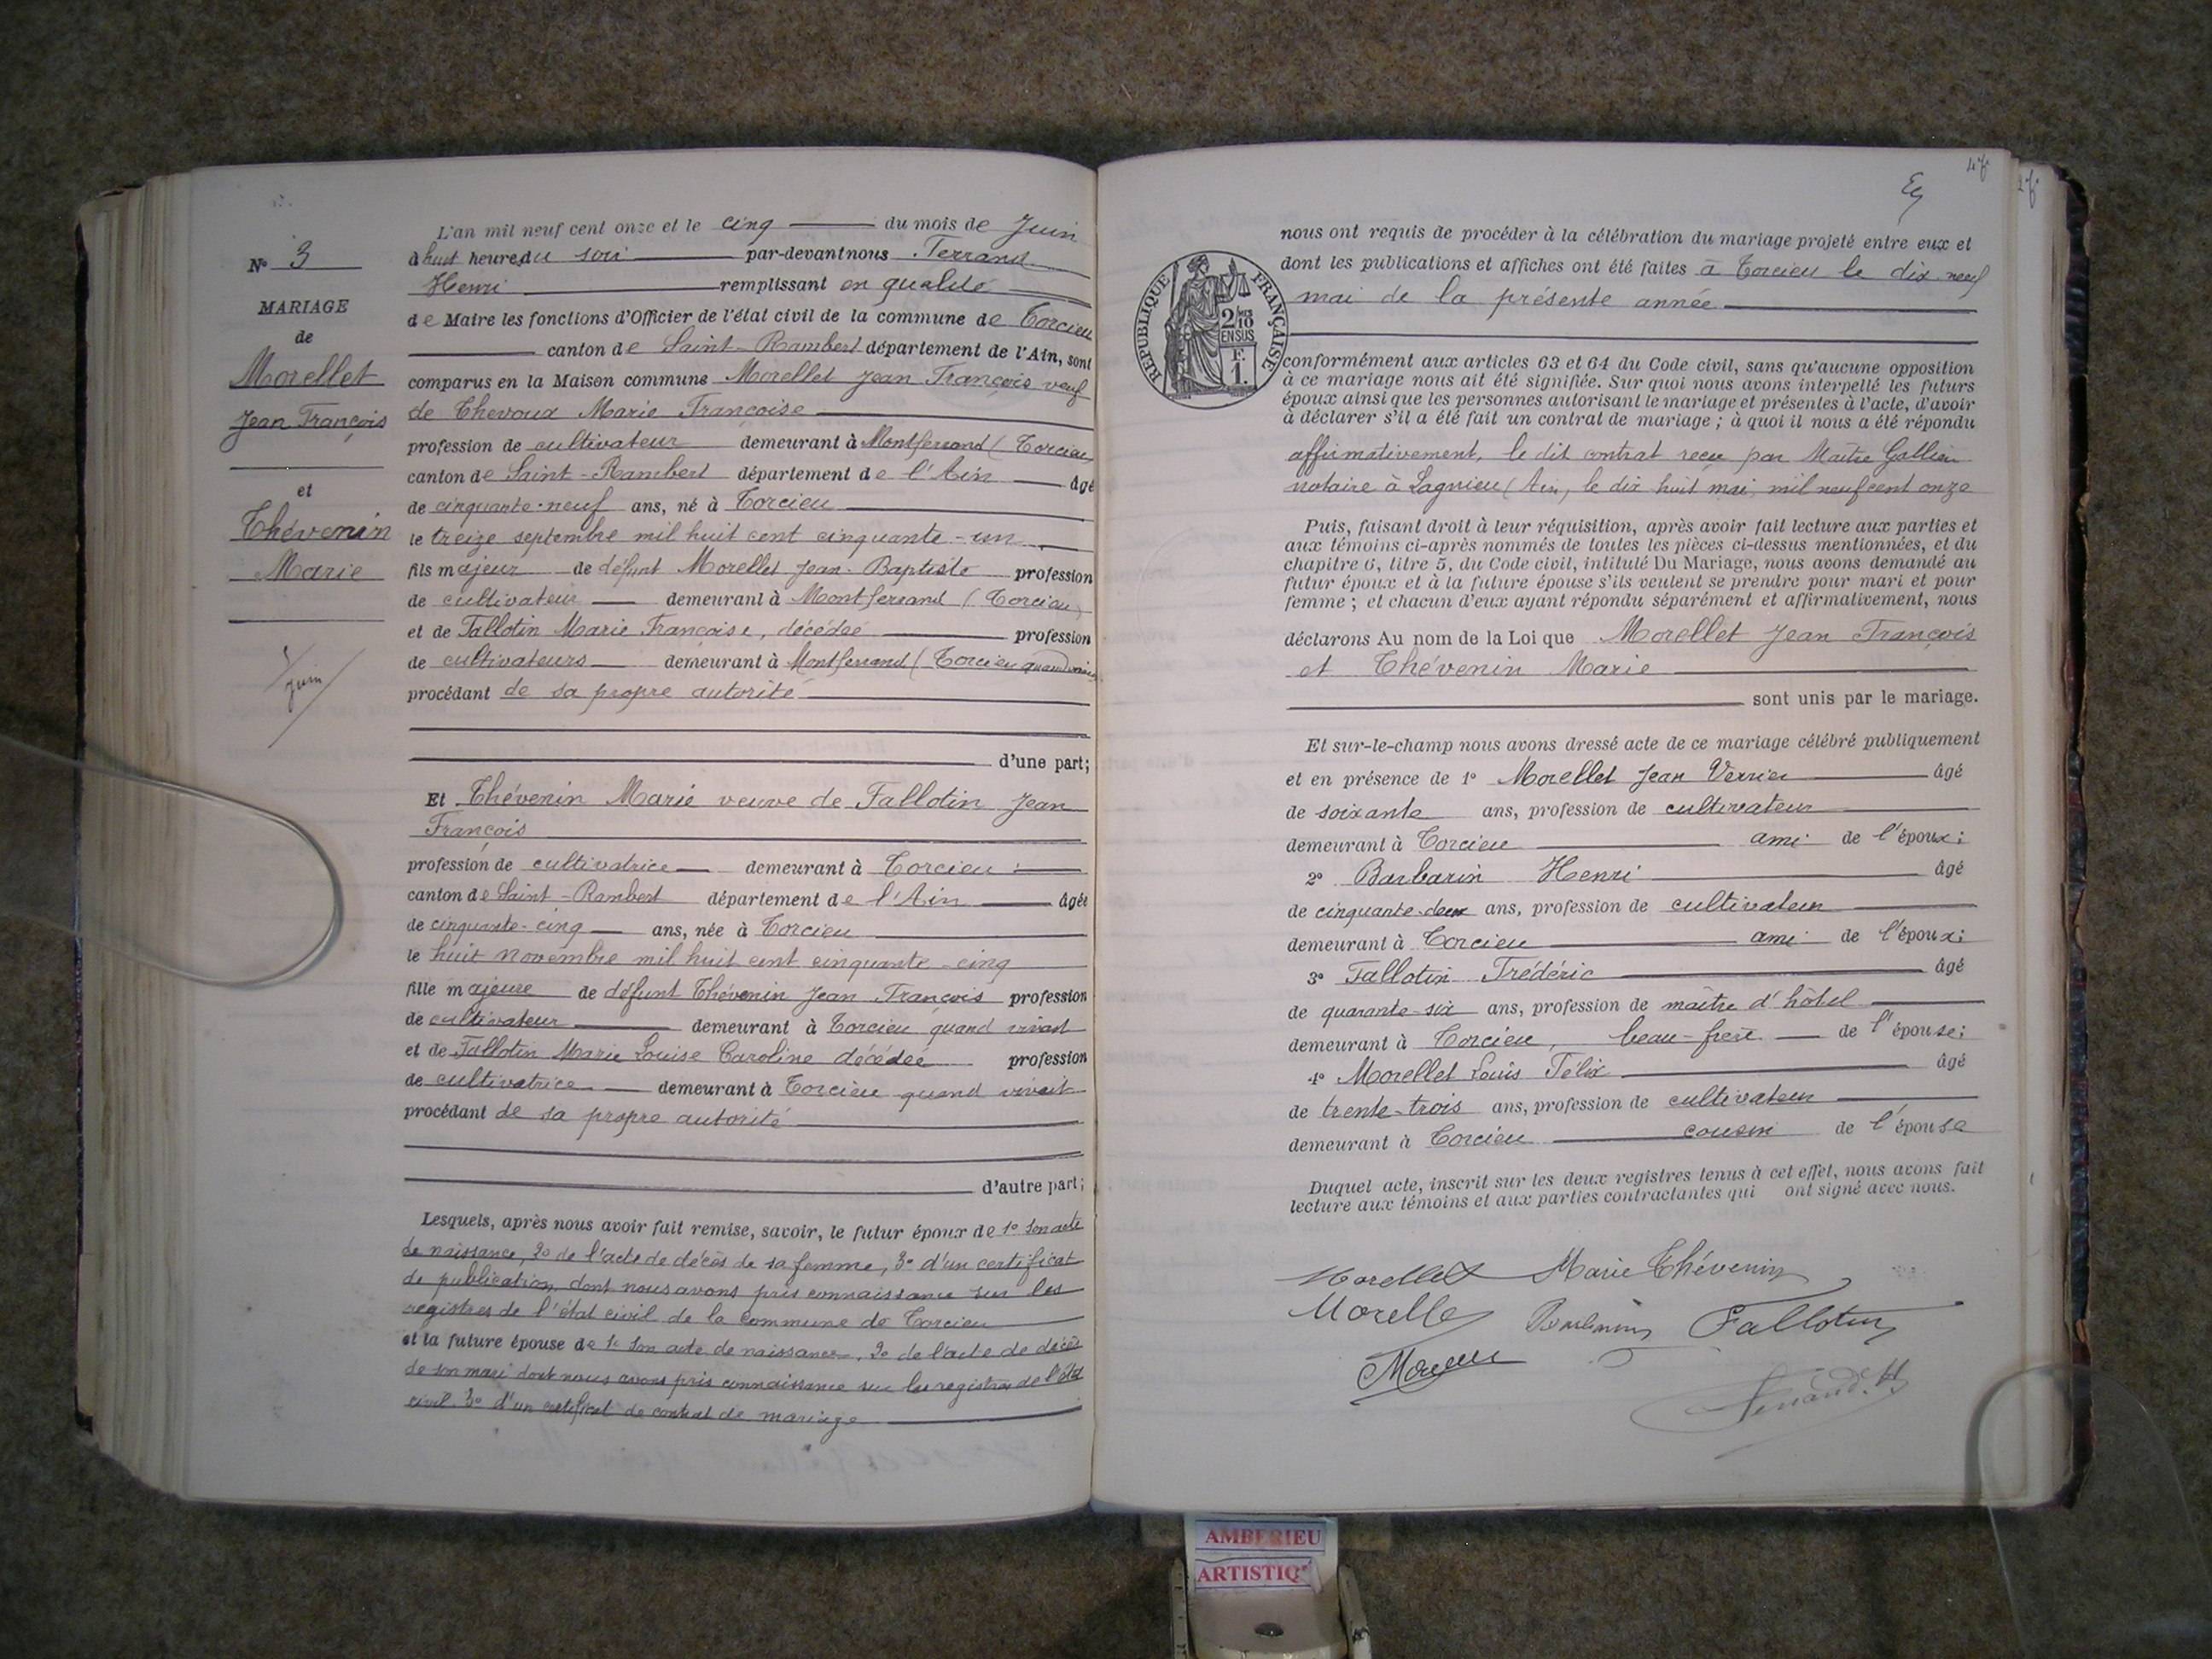 N° 3
MARIAGE
de
Morellet
Jean François
et
Thévenin
Marie
5
juin
L'an mil neuf cent onze et le cinq du mois de Juin
à huit heures du soir par-devant nous Ferrand
Henri remplissant en qualité
de Maire les fonctions d'Officier de l'état civil de la commune de Torcieu
canton de Saint-Rambert département de l'Ain, sont
comparus en la Maison commune Morellet Jean François veuf
de Thevoux Marie Françoise
profession de cultivateur demeurant à Montferrand (Torcieu)
canton de Saint-Rambert département de l'Ain âgé
de cinquante-neuf ans, né à Torcieu
le treize septembre mil huit cent cinquante-un
fils majeur de défunt Morellet Jean-Baptiste profession
de cultivateur demeurant à Montferrand (Torcieu)
et de Fallotin Marie Françoise, décédée profession
de cultivateurs demeurant à Montferrand (Torcieu quand vivaient
procédant de sa propre autorité
d'une part;
Et Thévenin Marie veuve de Fallotin Jean
François
profession de cultivatrice demeurant à Torcieu
canton de Saint-Rambert département de l'Ain âgée
de cinquante-cinq ans, née à Torcieu
le huit novembre mil huit cent cinquante-cinq
fille majeure de défunt Thévenin Jean François profession
de cultivateur demeurant à Torcieu quand vivait
et de Fallotin Marie Louise Caroline décédée profession
de cultivatrice demeurant à Torcieu quand vivait
procédant de sa propre autorité
d'autre part;
Lesquels, après nous avoir fait remise, savoir, le futur époux de 1° son acte
de naissance, 2° de l'acte de décès de sa femme, 3° d'un certificat
de publication, dont nous avons pris connaissance sur les
registres de l'état civil de la commune de Torcieu
et la future épouse de 1° son acte de naissance, 2° de l'acte de décès
de son mari dont nous avons pris connaissance sur les registres de l'état
civil. 3° d'un certificat de contrat de mariage
47
RÉPUBLIQUE FRANÇAISE
2/10
EN SUS
F.
1.
nous ont requis de procéder à la célébration du mariage projeté entre eux et
dont les publications et affiches ont été faites à Torcieu le dix neuf
mai de la présente année
conformément aux articles 63 et 64 du Code civil, sans qu'aucune opposition
à ce mariage nous ait été signifiée. Sur quoi nous avons interpellé les futurs
époux ainsi que les personnes autorisant le mariage et présentes à l'acte, d'avoir
à déclarer s'il a été fait un contrat de mariage; à quoi il nous a été répondu
affirmativement, le dit contrat reçu par Maître Gallien
notaire à Lagnieu (Ain, le dix huit mai mil neuf cent onze
Puis, faisant droit à leur réquisition, après avoir fait lecture aux parties et
aux témoins ci-après nommés de toutes les pièces ci-dessus mentionnées, et du
chapitre 6, titre 5, du Code civil, intitulé Du Mariage, nous avons demandé au
futur époux et à la future épouse s'ils veulent se prendre pour mari et pour
femme; et chacun d'eux ayant répondu séparément et affirmativement, nous
déclarons Au nom de la Loi que Morellet Jean François
et Thévenin Marie
sont unis par le mariage.
Et sur-le-champ nous avons dressé acte de ce mariage célébré publiquement
et en présence de 1° Morellet Jean Verrier âgé
de soixante ans, profession de cultivateur
demeurant à Torcieu ami de l'époux;
2° Barbarin Henri âgé
de cinquante-deux ans, profession de cultivateur
demeurant à Torcieu ami de l'époux;
3° Fallotin Frédéric âgé
de quarante-six ans, profession de maître d'hôtel
demeurant à Torcieu, beau-frère de l'épouse;
4° Morellet Louis Félix âgé
de trente-trois ans, profession de cultivateur
demeurant à Torcieu cousin de l'épouse
Duquel acte, inscrit sur les deux registres tenus à cet effet, nous avons fait
lecture aux témoins et aux parties contractantes qui ont signé avec nous.
Morellet Marie Thévenin
Morellet Barbarin Fallotin
Ferrand. H
AMBERIEU
ARTISTIQ